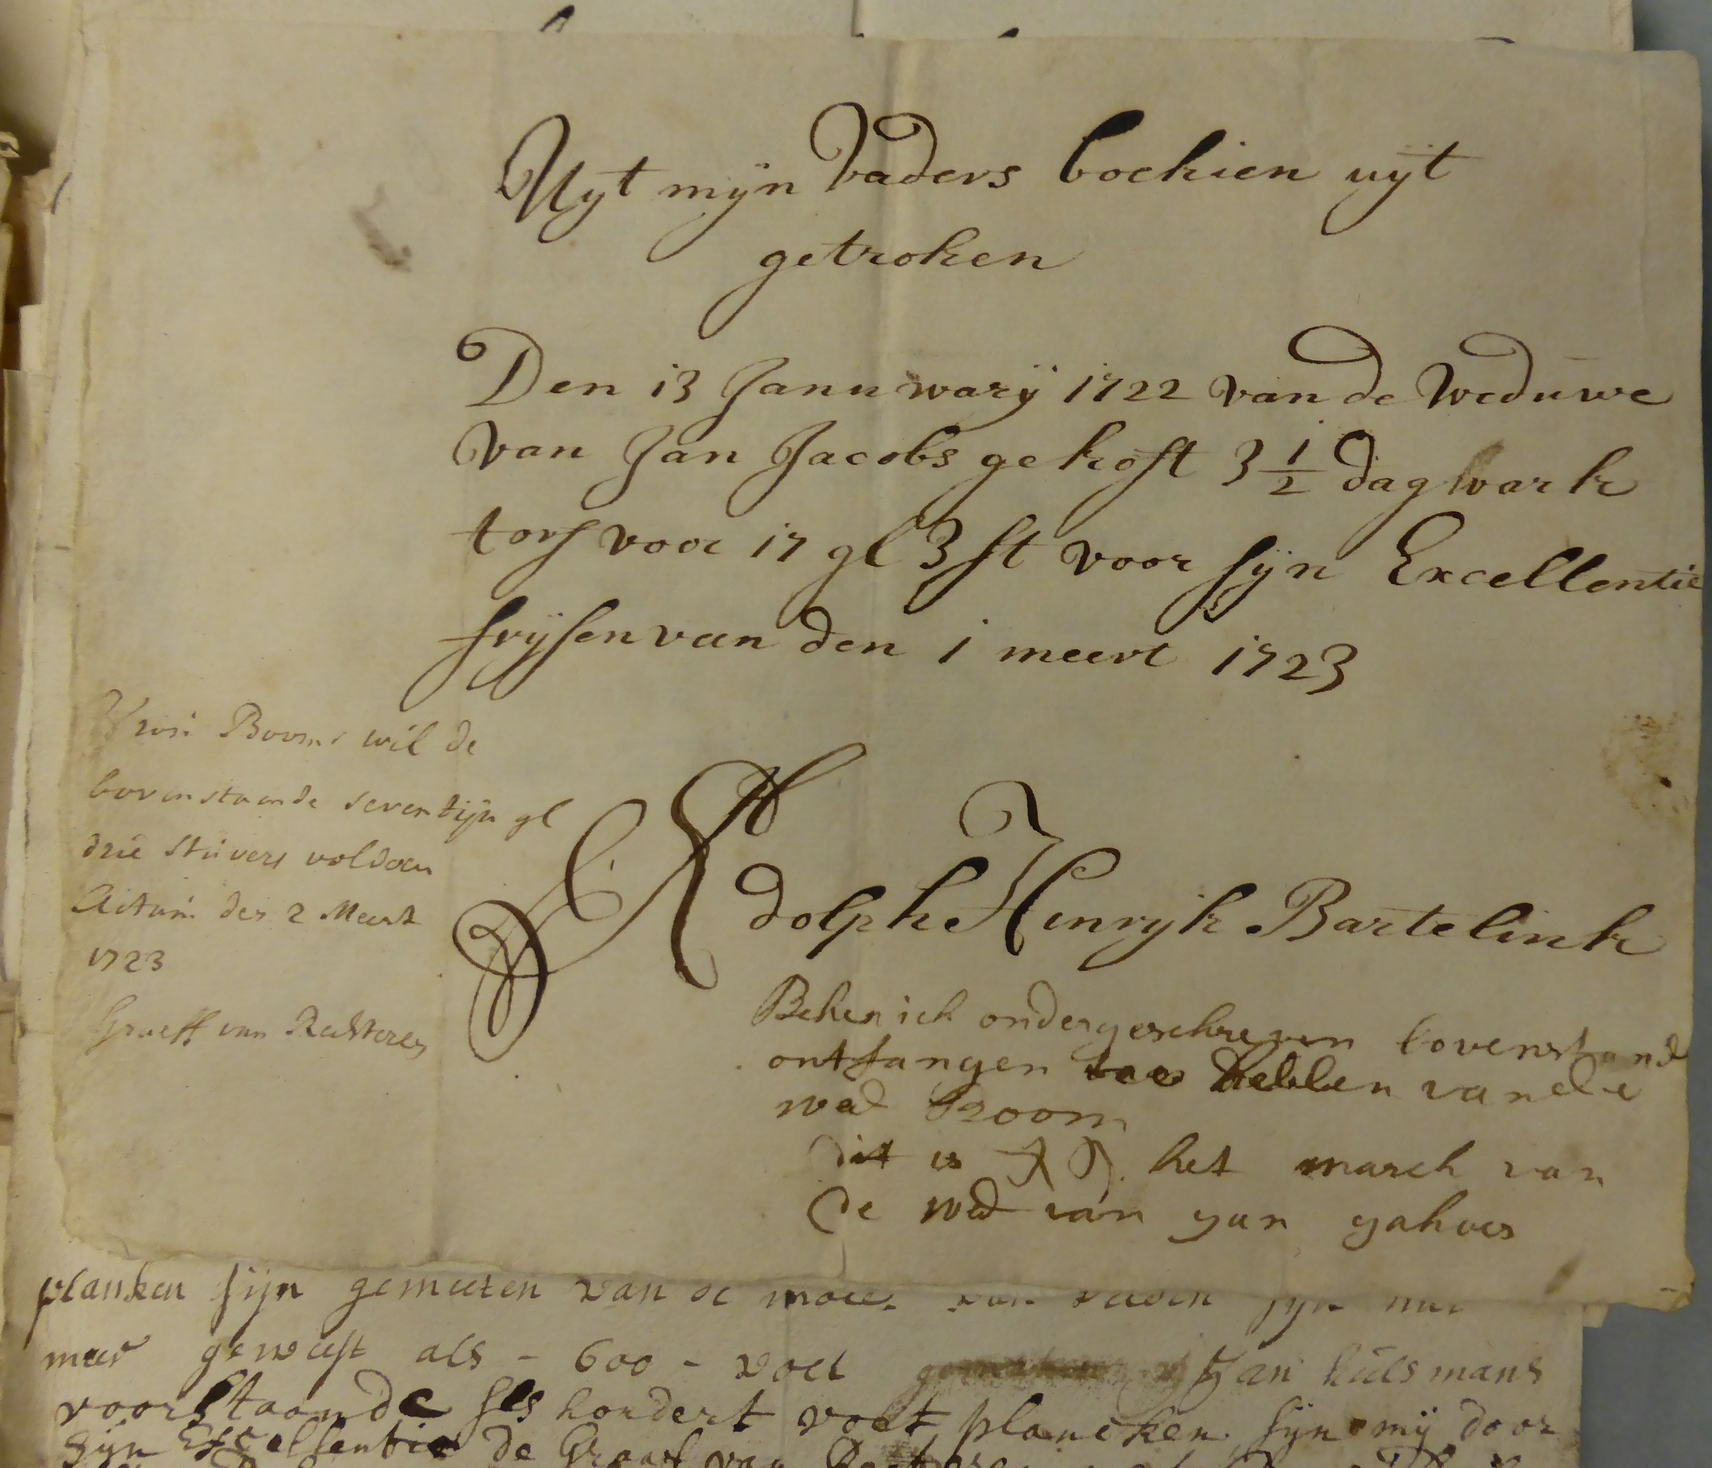 Uyt mijn Vaders boekien uijt
getroken
Den 13 Januwarij 1722 van de Weduwe
van Jan Jacobs gekoft 3 1/2 dagwark
torf voor 17 gl 3 st voor sijn Excellentie
frijsenvan den 1 meert 1723
Boom wil de
bovenstaende seventijn gl
drie stuvers voldoen
Actum den 2 Meert
1723
Graeff van Rechteren
Adolph Hinryk Bartelink
Beken ick ondergeschreven bovenstand
ontfangen te hebben van de
wed Boom
dit is het march van
de wed van yan yakoes
planken sijn gemeeten van de sijn
meer geweest als - 600 - voet Jan hulsmans
voorstaande ses hondert voet plancken sijn mij door
sijn Excellentie de Graaf van